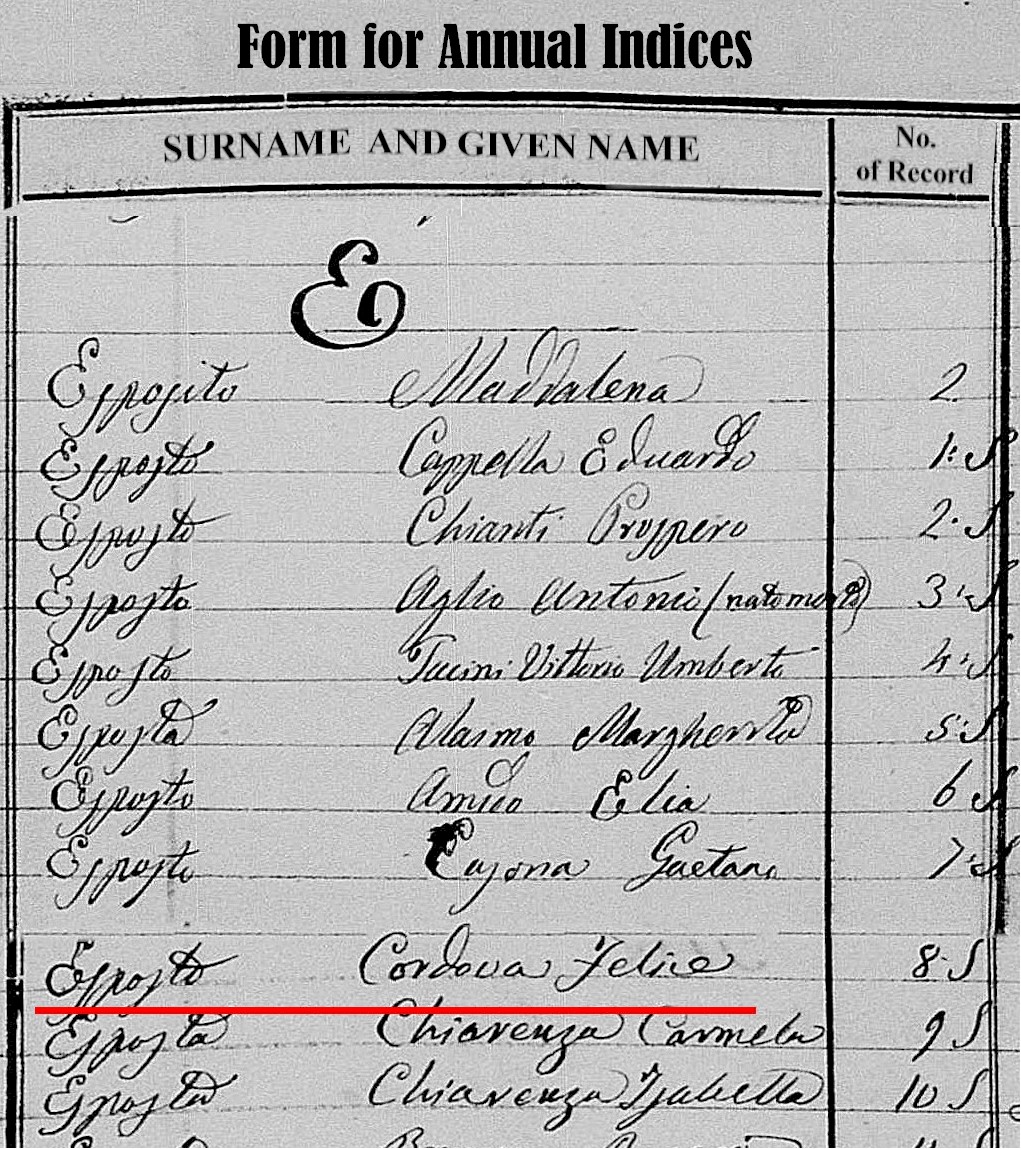 Form for Annual Indices
SURNAME AND GIVEN NAME No. of Record
E
Esposito Maddalena 2
Esposto Cappella Eduardo 1. S
Esposto Chianti Prospero 2. S
Esposto Aglio Antonio (natomorto) 3. S
Esposto Vittorio Umberto 4. S
Esposta Alaimo Margherita 5. S
Esposto Amico Elia 6 S
Esposto Gaetano 7. S
Esposto Cordova Felice 8. S
Esposta Chiavenza Carmela 9 S
Esposta Chiavenza Isabella 10 S